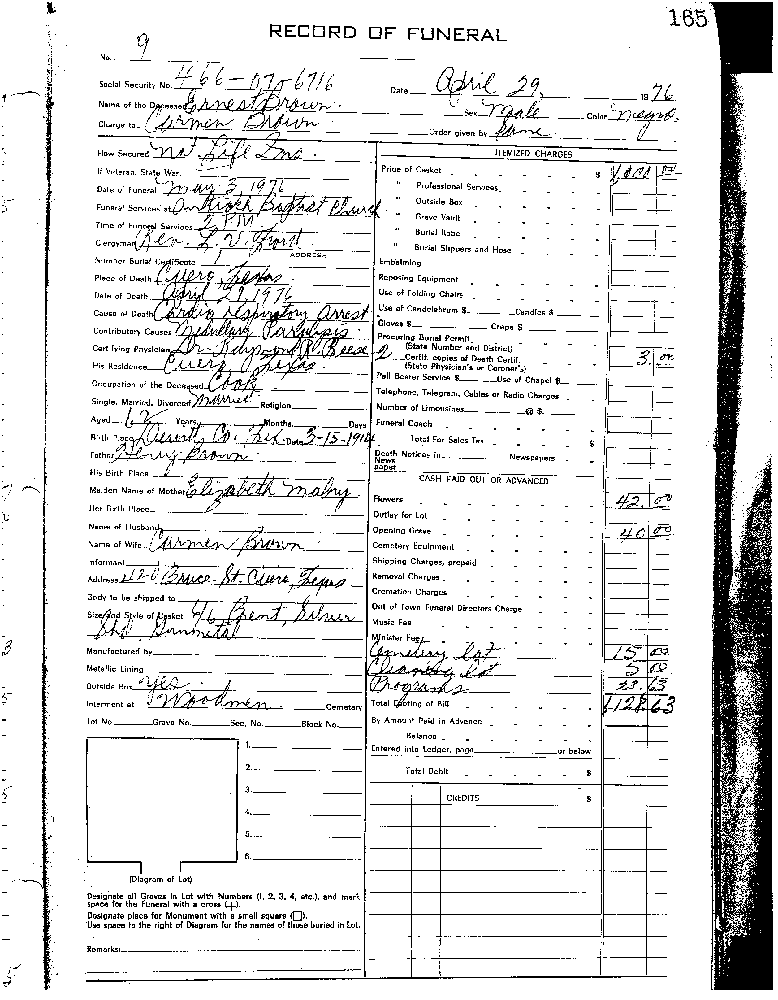 165
RECORD OF FUNERAL
No. 9
Social Security No. 466-07-6716
Date April 29, 1976
Name of the Deceased Ernest Brown.
Sex Male Color Negro.
Charge to Carmen Brown
Order given by Same
How Secured Nat Life Ins.
If Veteran, State War.
Date of Funeral May 3, 1976
Funeral Services at Antioch Baptist Church
Time of Funeral Services 2 PM
Clergyman Rev. L. V. Ford
ADDRESS
Number Burial Certificate
Place of Death Cuero, Texas
Date of Death April 29, 1976
Cause of Death Cardio respiratory Arrest
Contributory Causes Medullary Paralysis
Certifying Physician Dr. Raymond R. Reese
His Residence Cuero, Texas
Occupation of the Deceased Cook
Single, Married, Divorced Married Religion
Aged 62 Years Months Days
Birth Place Dewitt Co. Tex. Date 3-15-1914
Father Henry Brown
His Birth Place
Maiden Name of Mother Elizabeth
Her Birth Place
Name of Husband
Name of Wife Carmen Brown
Informant
Address Bruce St. Cuero, Texas
Body to be shipped to
Size and Style of Casket 6/6 Silver
Shd. Gunmetal
Manufactured by
Metallic Lining
Outside Box Yes
Interment at Woodmen Cemetary
Lot No. Grave No. Sec. No. Block No.
1.
2.
3.
4.
5.
6.
(Diagram of Lot)
Designate all Graves in Lot with Numbers (1, 2, 3, 4, etc.), and mark
space for the Funeral with a cross (+).
Designate place for Monument with a small square (□).
Use space to the right of Diagram for the names of those buried in Lot.
Remarks:
ITEMIZED CHARGES
Price of Casket $ 1,000 00
" Professional Services
" Outside Box
" Grave Vault
" Burial Robe
" Burial Slippers and Hose
Embalming
Reposing Equipment
Use of Folding Chairs
Use of Candelabrum $ Candles $
Gloves $ Crepe $
Procuring Burial Permit
(State Number and District)
2 Certif. copies of Death Certif. 3. 00
(State Physician's or Coroner's)
Pall Bearer Service $ Use of Chapel $
Telephone, Telegram, Cables or Radio Charges
Number of Limousines @ $
Funeral Coach
Total For Sales Tax $
Death Notices in Newspapers
News
paper
CASH PAID OUT OR ADVANCED
Flowers 42. 00
Outlay for Lot
Opening Grave 40 00
Cemetary Equipment
Shipping Charges, prepaid
Removal Charges
Cremation Charges
Out of Town Funeral Directors Charge
Music Fee
Minister Fee
Cemetery lot 15 00
Cleaning lot 5 00
Programs 23. 63
Total Footing of Bill 1128 63
By Amount Paid in Advance
Balance
Entered into Ledger, page or below
Total Debit $
CREDITS $